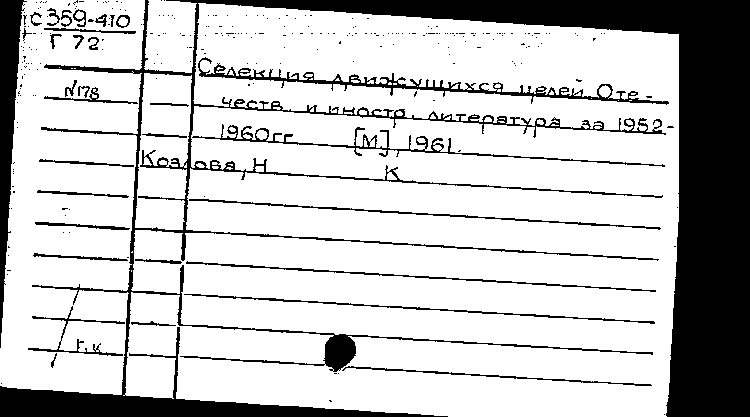 с 359-410
Г 72
Селекция движущихся целей. Оте-
№178
честв. и иностр. литература за 1952-
1960гг. [М], 1961.
Козлова, Н К
г. к